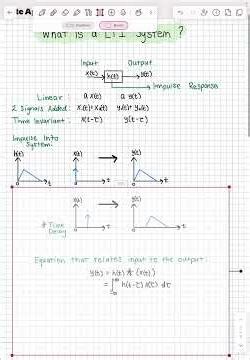 What is a LTI System ?
Input Output
x(t) h(t) y(t)
Impulse Response
Linear : a x(t) a y(t)
2 Signals Added: x₁(t)+x₂(t) y₁(t)+y₂(t)
Time Invariant : x(t-τ) y(t-τ)
Impulse Into
System:
h(t) x(t) y(t)
t t t
x(t) y(t)
# Time
Delay t t
Equation that relates input to the output:
y(t) = h(t) * (x(t))
= ∫ h(t-τ) x(τ) dτ